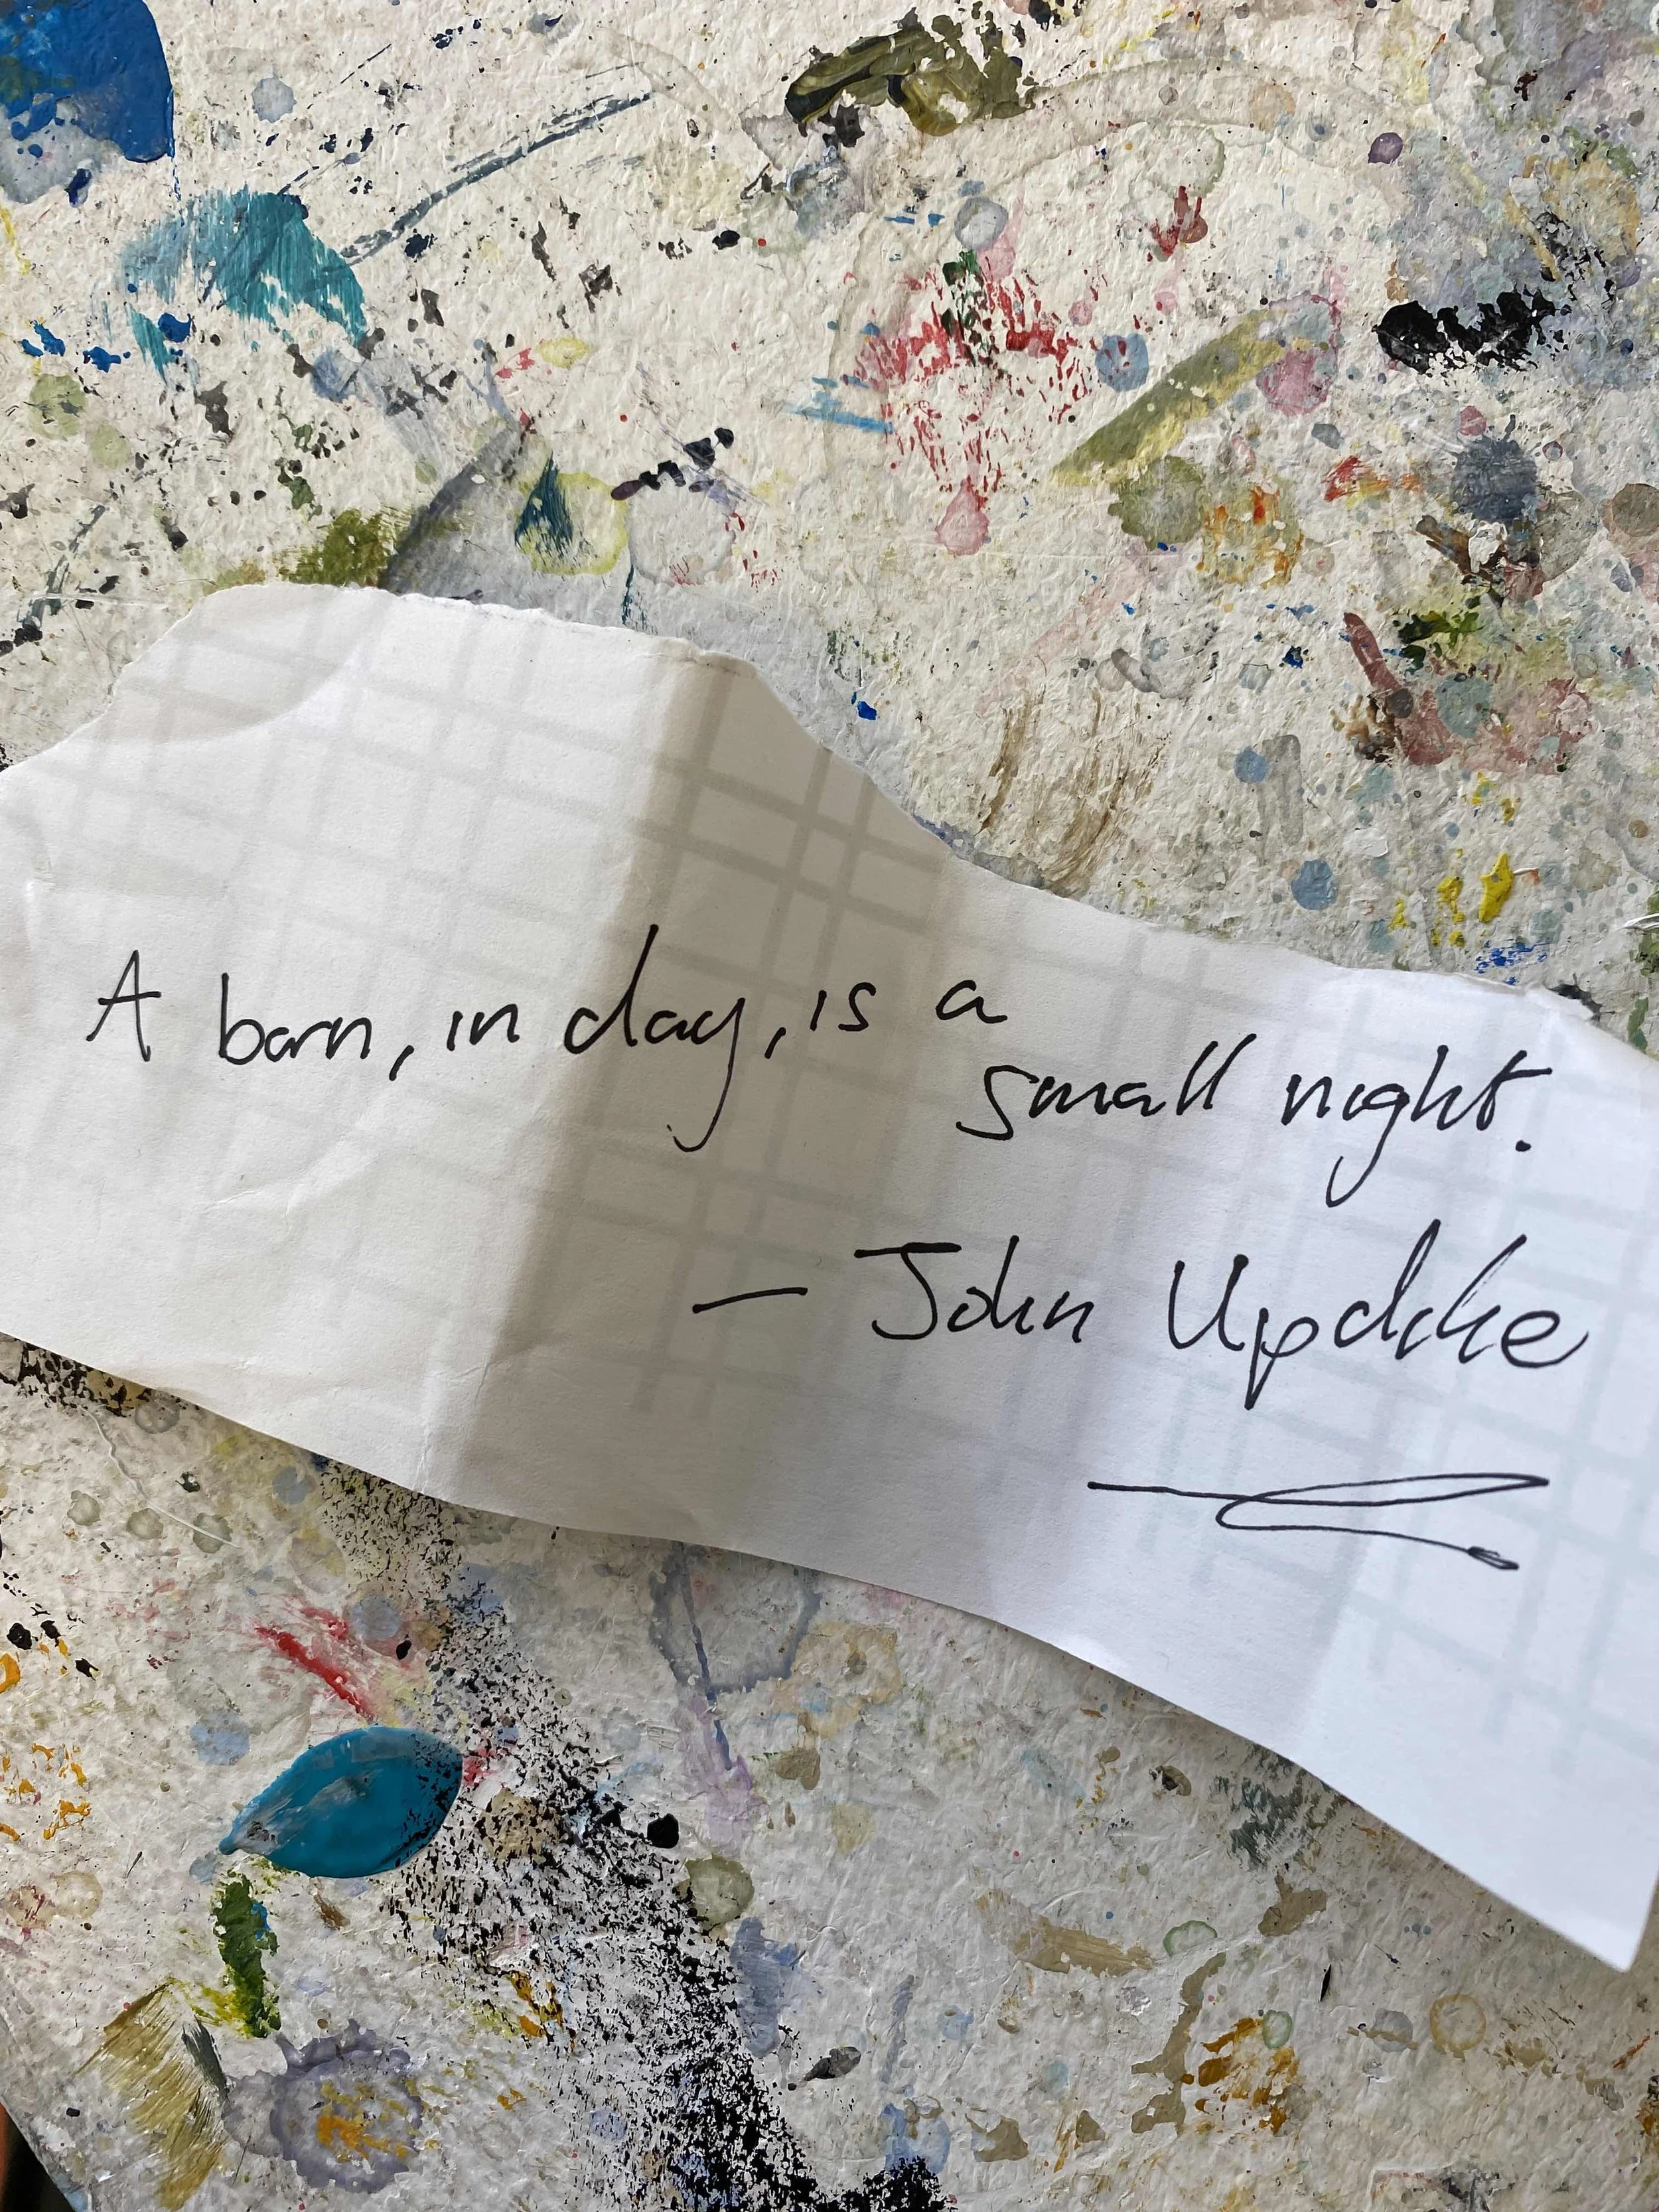 A barn, in day, is a
small night.
— John Updike